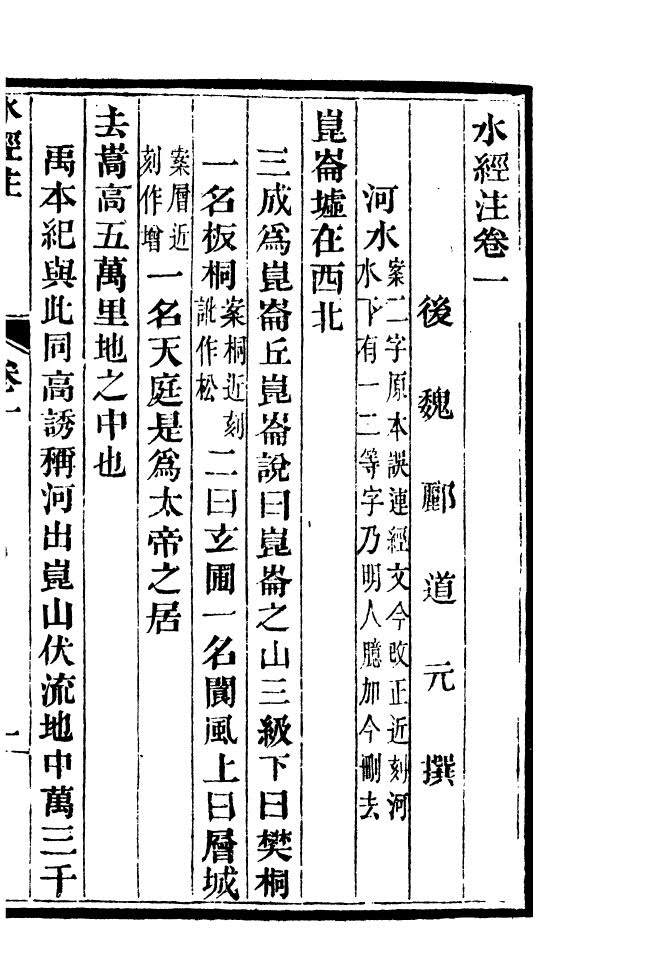 水經注卷一
後魏酈道元撰
河水案二字原本誤連經文今改正近刻河水下有一二等字乃明人臆加今刪去
崑崙墟在西北
三成爲崑崙丘崑崙說曰崑崙之山三級下曰樊桐
一名板桐案桐近刻訛作松二曰玄圃一名閬風上曰層城
案層近刻作增一名天庭是爲太帝之居
去嵩高五萬里地之中也
禹本紀與此同高誘稱河出崑山伏流地中萬三千
水經注 卷一 一